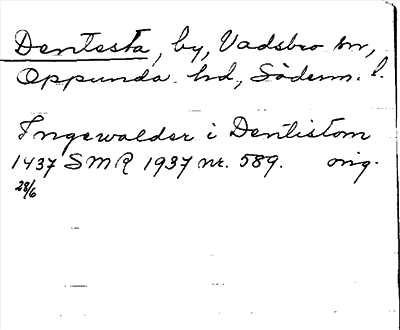 Dentesta, by, Vadsbro sn,
Oppunda hd, Söderm. l.
Ingewalder i Dentistom
1437 SMR 1937 nr. 589. orig.
28/6